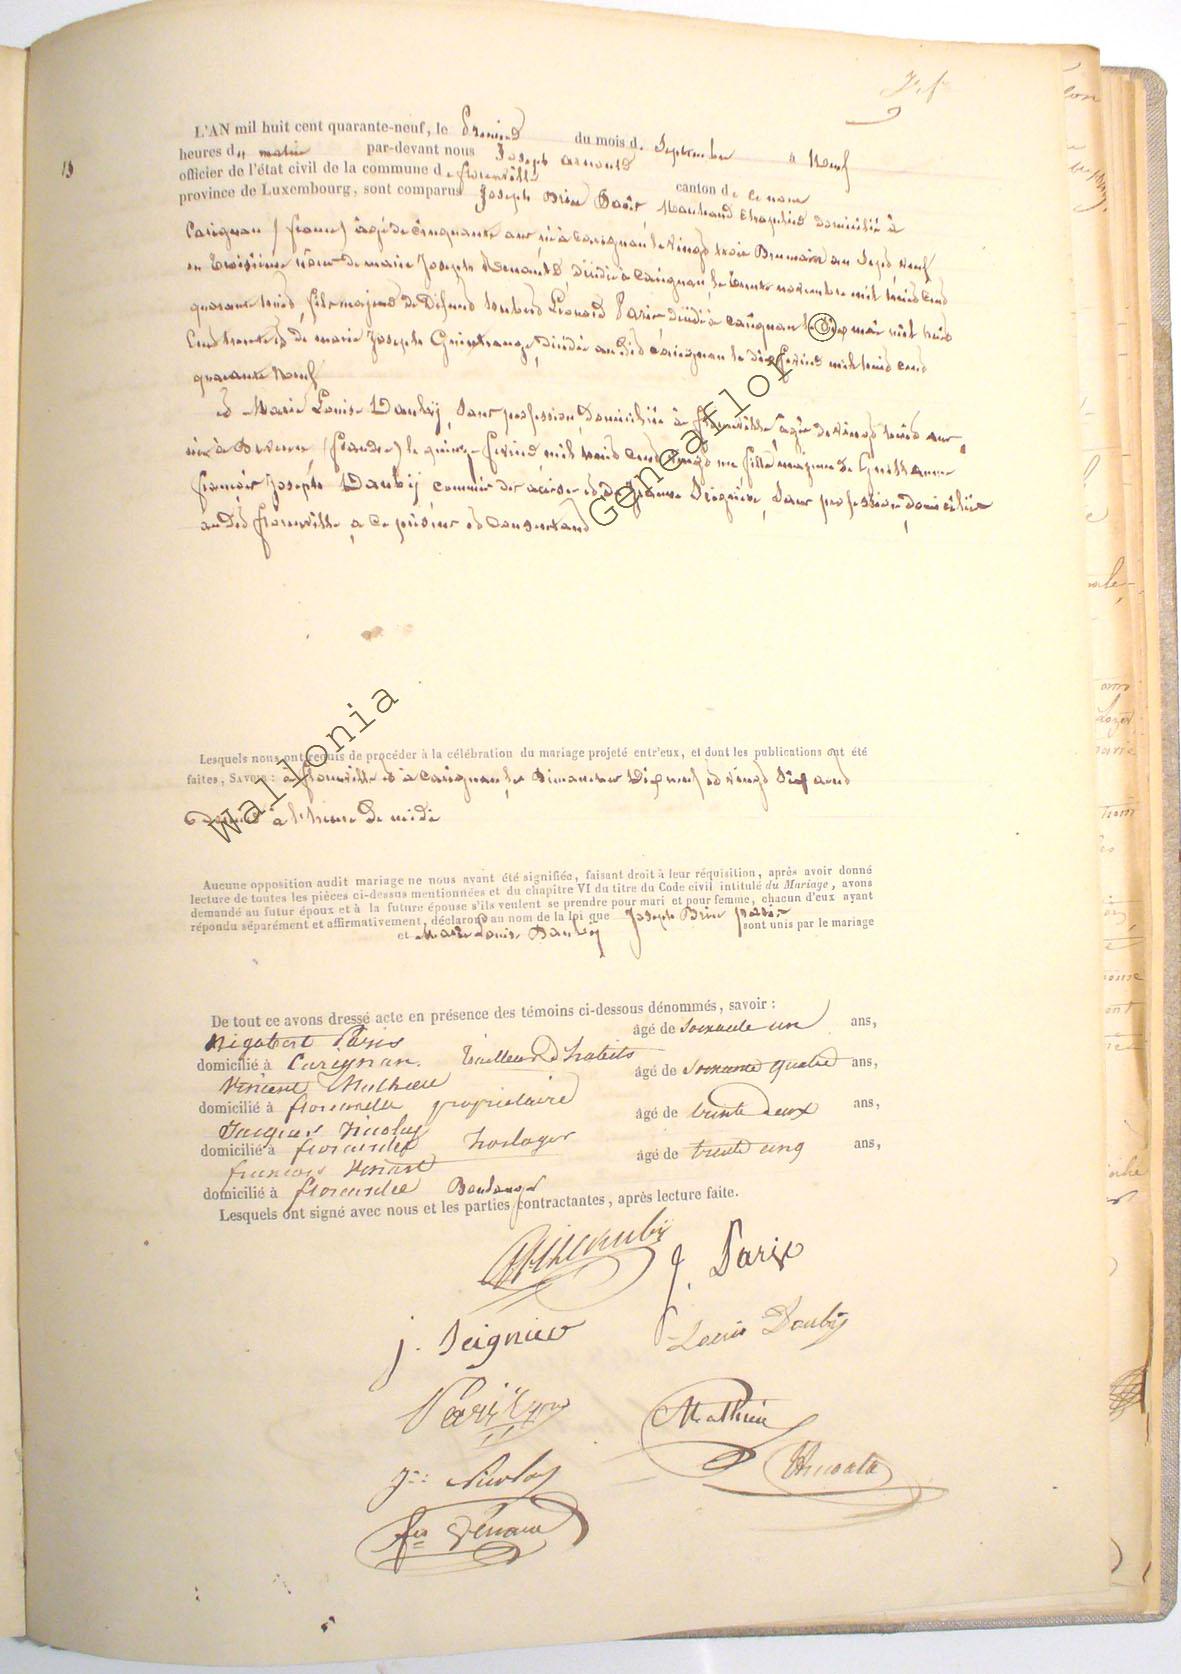 13
L'AN mil huit cent quarante-neuf, le Premier du mois de Septembre à Neuf
heures du matin par-devant nous Joseph arnould
officier de l'état civil de la commune de florenville canton de ce nom
province de Luxembourg, sont comparus Joseph Brice Paris Marchand Chapelier domicilié à
Carignan (france) âgé de Cinquante ans, né à Carignan, le vingt trois Brumaire an Sept, veuf
en troisième nôces de marie Joseph décédée à Carignan, le novembre mil huit cent
quarante huit, fils majeur de Défunt Léonard Paris décédé à Carignan le mil huit
Cent trente et de marie Joseph décédée audit Carignan le dix fevrier mil huit cent
quarante Neuf
et Marie Louise Dauby, Sans profession, Domiciliée à florenville, agée de vingt huit ans
née à (flandre) le quinze fevrier mil huit cent vingt un fille majeure de Guillaume
françois Joseph Dauby commis des acises et de Jeanne Seignieur, Sans profession, domiciliés
audit florenville, a ce présens et consentans
Lesquels nous ont requis de procéder à la célébration du mariage projeté entr'eux, et dont les publications ont été
faites, SAVOIR: à florenville et à Carignan, les Dimanches Dix neuf et vingt Six aout
Dernier à l'heure de midi
Aucune opposition audit mariage ne nous ayant été signifiée, faisant droit à leur réquisition, après avoir donné
lecture de toutes les pièces ci-dessus mentionnées et du chapitre VI du titre du Code civil intitulé du Mariage, avons
demandé au futur époux et à la future épouse s'ils veulent se prendre pour mari et pour femme, chacun d'eux ayant
répondu séparément et affirmativement, déclarons au nom de la loi que Joseph Brice paris
et Marie Louise Dauby sont unis par le mariage
De tout ce avons dressé acte en présence des témoins ci-dessous dénommés, savoir:
Rigobert Paris âgé de Soixante un ans,
domicilié à Carignan. Tailleur d'habits
Vincent Mathieu âgé de Soixante quatre ans,
domicilié à florenville propriétaire
Jacques Nicolas âgé de trente deux ans,
domicilié à florenville horloger
francois âgé de trente cinq ans,
domicilié à florenville Boulanger
Lesquels ont signé avec nous et les parties contractantes, après lecture faite.
J. Paris
j. Seignieur
Louis Dauby
Paris
Mathieu
Nicolas
Wallonia Geneaflor ©